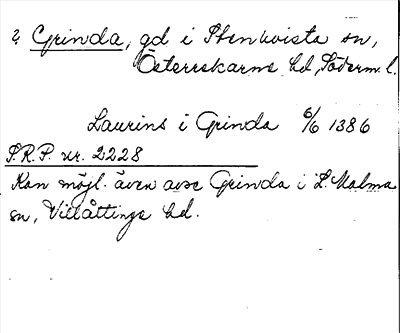 ? Grinda, gd i Stenkvista sn,
Österrekarne hd, Söderm. l.
Laurins i Grinda 6/6 1386
S.R.P. nr. 2228
Kan möjl. även avse Grinda i L. Malma
sn, Villåttinge hd.